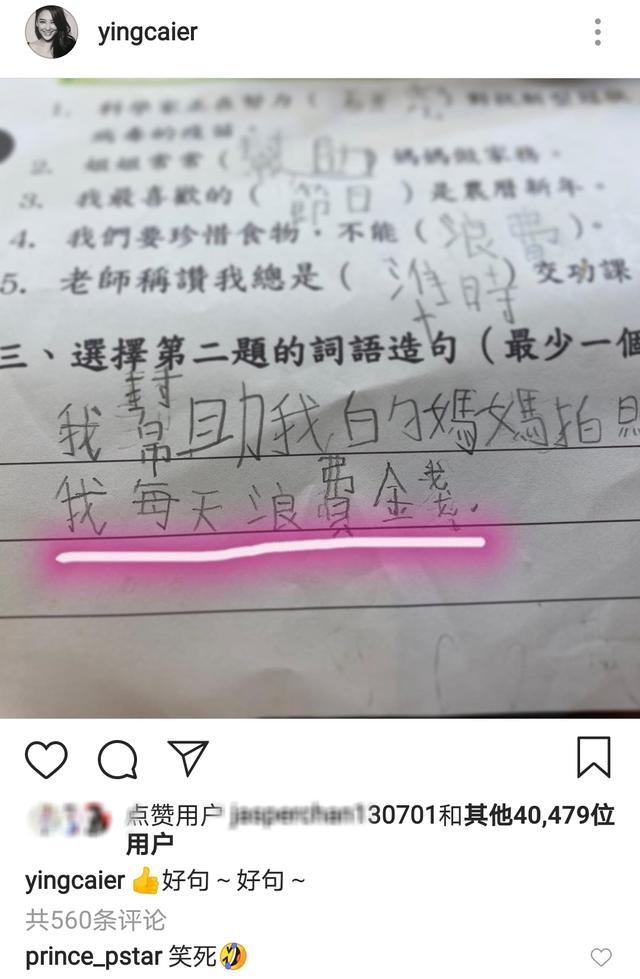 yingcaier
1. 科學家正在努力（
2. 姐姐常常（幫助）媽媽做家務。
3. 我最喜歡的（節日）是農曆新年。
4. 我們要珍惜食物，不能（浪費）。
5. 老師稱讚我總是（準時）交功課
三、選擇第二題的詞語造句（最少一個
我幫助我的媽媽拍照
我每天浪費金錢.
点赞用户 130701和其他40,479位
用户
yingcaier 👍好句 ~ 好句 ~
共560条评论
prince_pstar 笑死🤣